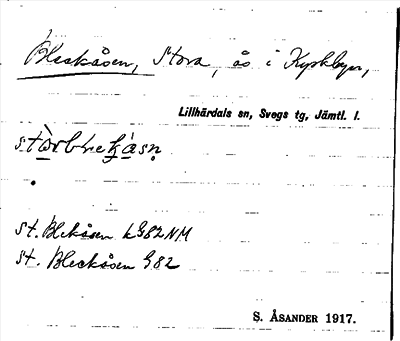 Bleckåsen, Stora, ås i Kyrkbyn,
Lillhärdals sn, Svegs tg, Jämtl. l.
St. Blekåsen kG82NM
St. Bleckåsen G82
S. ÅSANDER 1917.